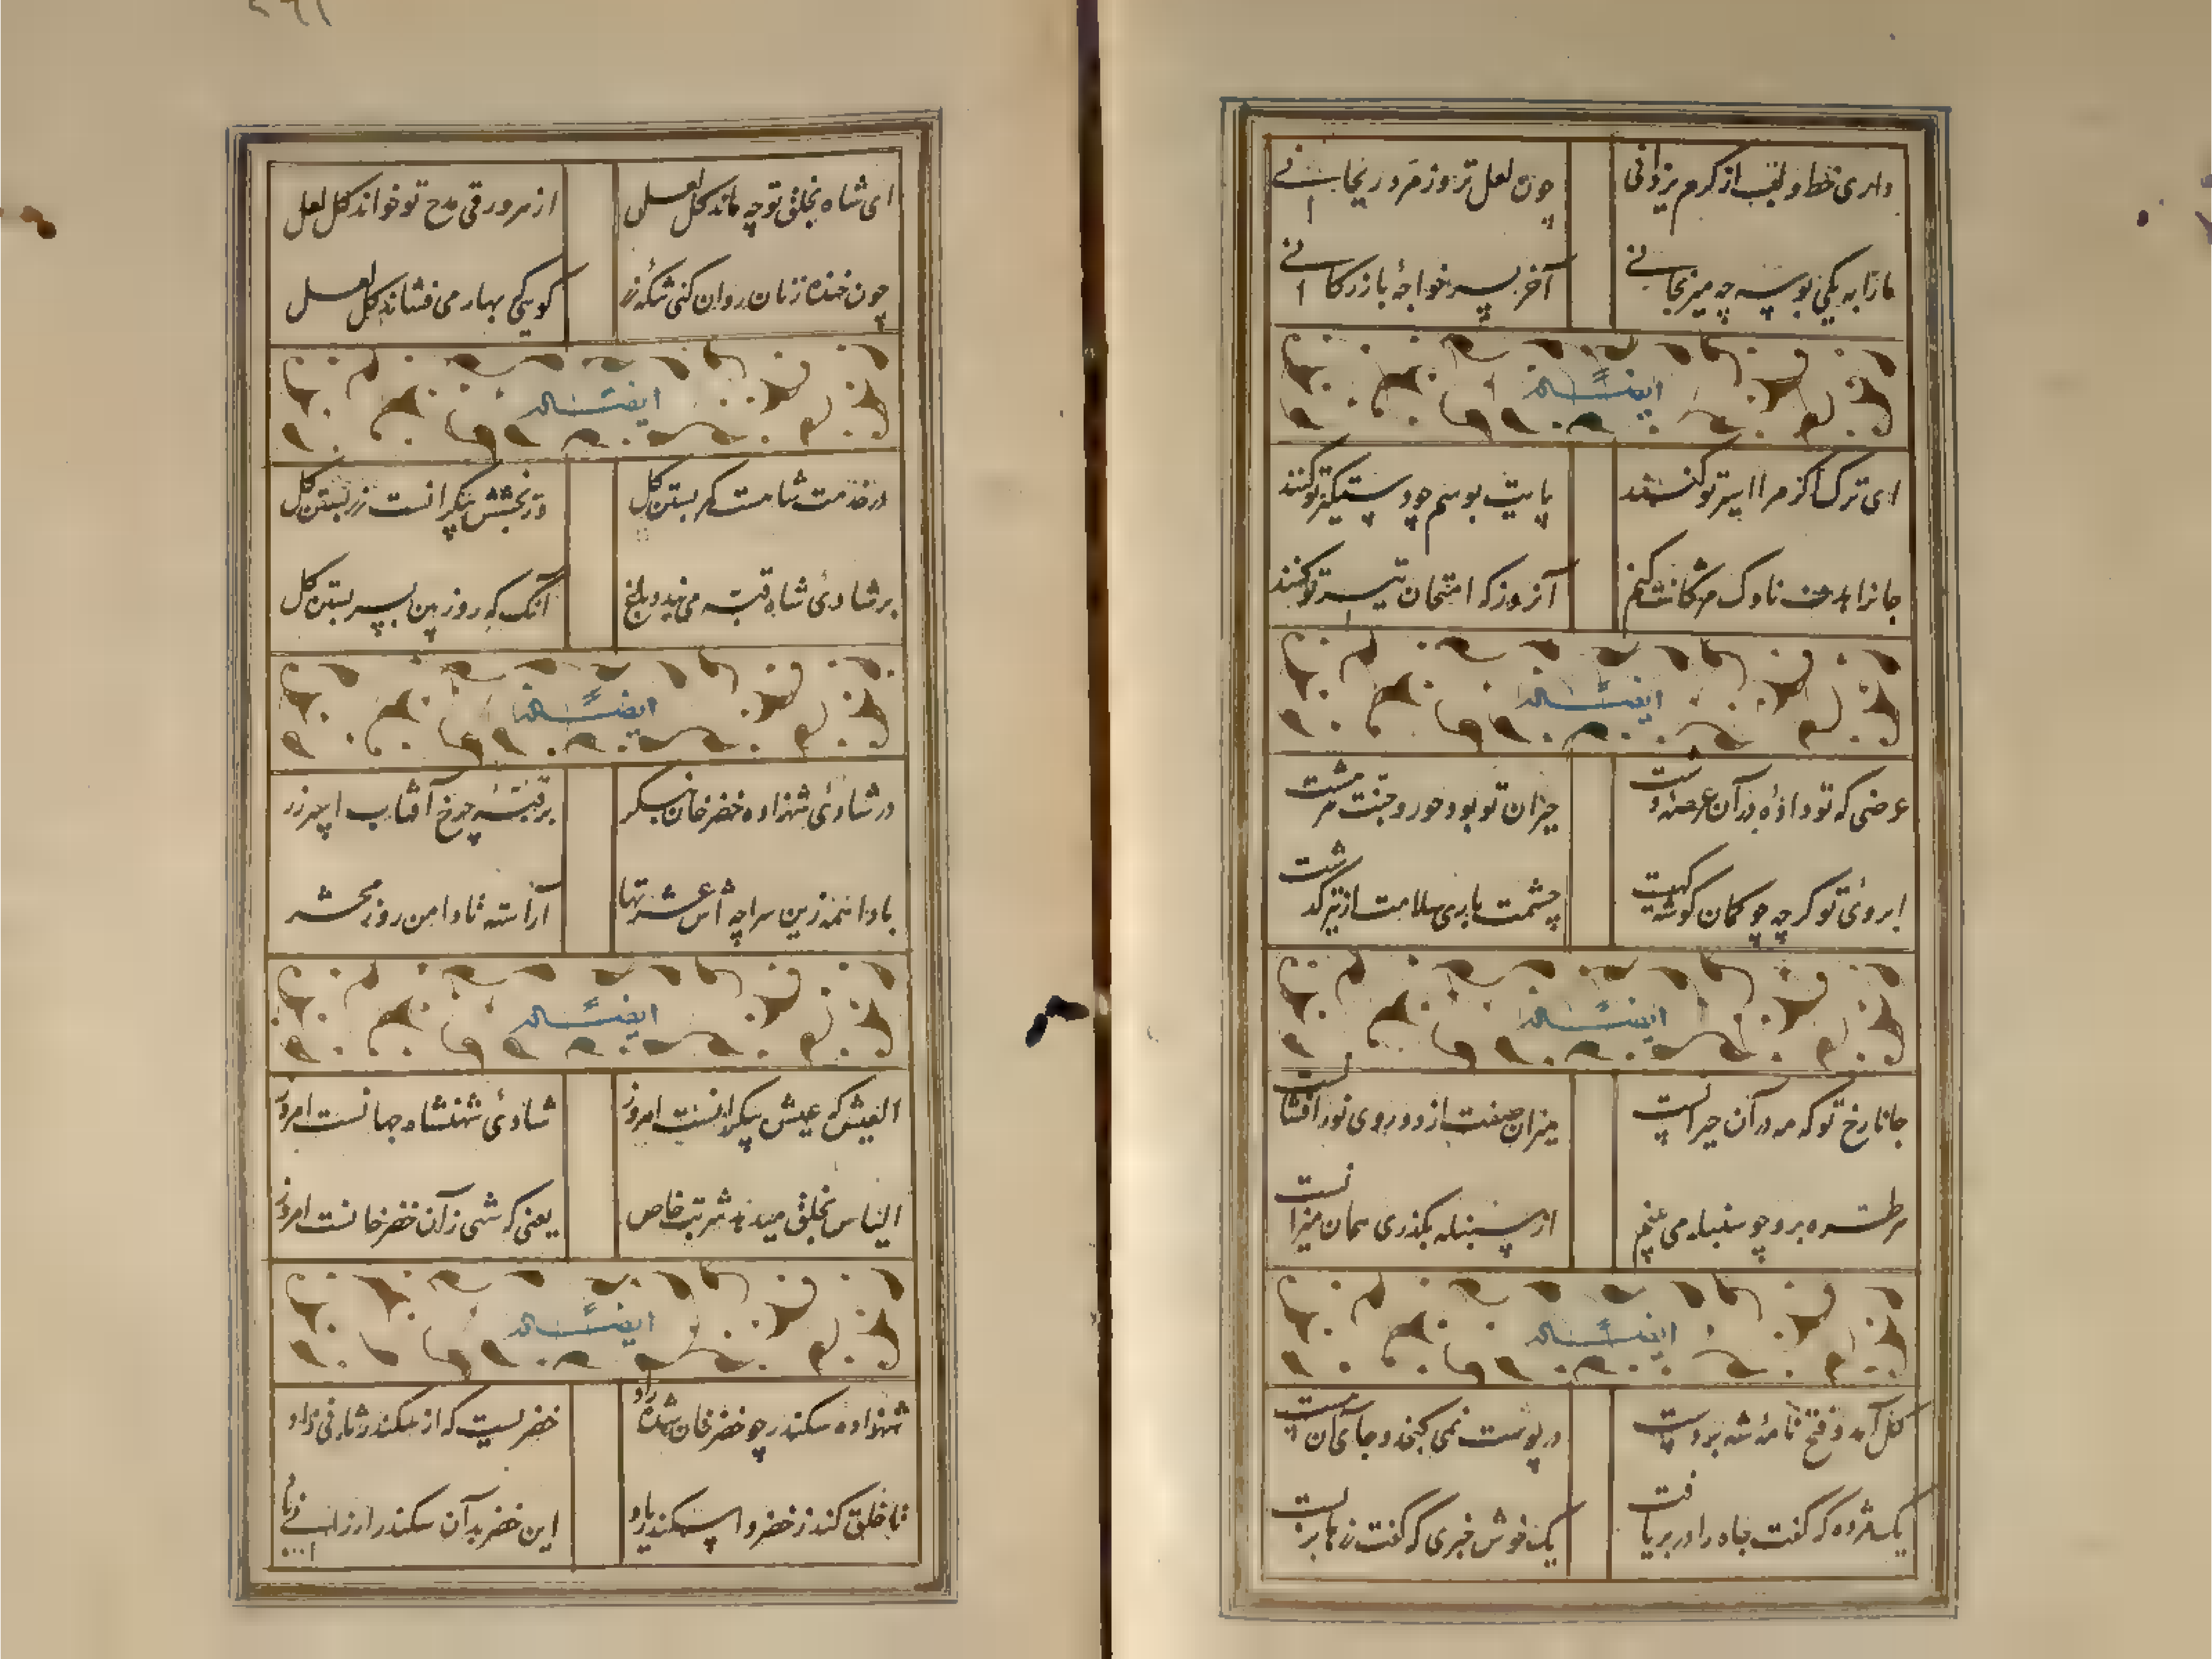 داری خط و لب از کرم یزدانی
چون لعل تر و زمرد ریحانی
ما را به یکی بوسه چه میرنجانی
آخر پسر خواجهٔ بازرکانی
ایضاً له
ای ترک اکر مرا اسیر تو کنند
پایت بوسم چو دستکیر تو کنند
جانرا هدف ناوک مژکانت کنم
آنروز که امتحان تیر تو کنند
ایضاً له
عرضی که تو دادهٔ در آن عرصه
حیران تو بود حور و جنت
ابروی تو کر چه چو کمان کوشه
چشمت باری سلامت از تیر کذشت
ایضاً له
جانا رخ تو که مه در آن حیرانست
میزان صفت از دو روی نور افشانست
هر طره برو چو سنبله می بینم
از سنبله بکذری همان میزانست
ایضاً له
کل آمد و فتح نامهٔ شه بر دست
در پوست نمی کنجد و جای آن هست
یک مژده که کفت جاه را در بر یافت
یک خوش خبری که کفت زرها بر بست
ای شاه بخلق تو چه ماند کل لعل
از هر ورقی مدح تو خواند کل لعل
چون خنده زنان روان کنی تنکهٔ زر
کویی که بهار می فشاند کل لعل
ایضاً له
در خدمت شاهست کمر بستن کل
وز بخشش بیکرانست زر بستن کل
بر شادی شاه قبه می بندد بلخ
آنک که روز بین بسر بستن کل
ایضاً له
در شادی شهزاده خضر خان بنکر
بر قبهٔ چرخ آفتاب از زر
بادا همه زین سراچه اش عشرتها
آراسته تا دامن روز محشر
ایضاً له
العیش که عیش بیکرانست امروز
شادی شهنشاه جهانست امروز
الیاس بخلق میدهد شربت خاص
یعنی که شی زآن خضر خانست امروز
ایضاً له
شهزاده سکندر چو خضر خان شه زاد
خضریست که از سکندر ثانی زاد
تا خلق کند ز خضر و اسکندر یاد
این خضر بدآن سکندر ارزانی باد